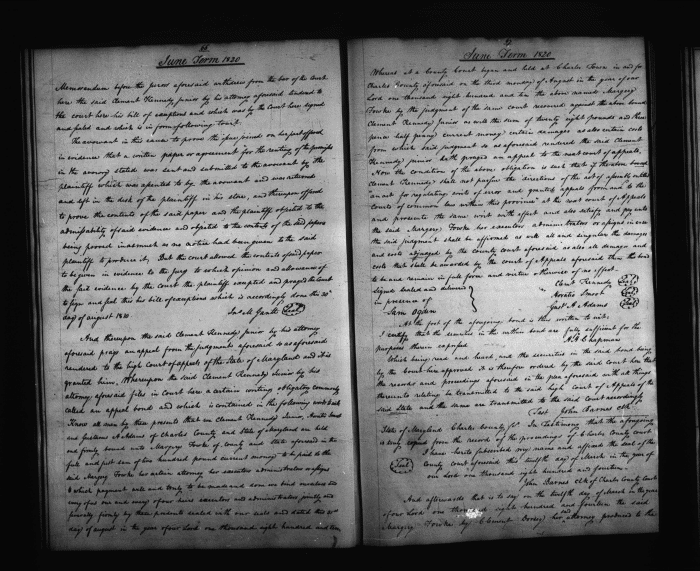 June Term 1820
Memorandum before the jurors aforesaid withdrew from the bar of the Court
here the said Clement Kennedy junior by his attorney aforesaid tendered to
the court here his bill of exceptions and which was by the court here signed
and sealed and which is in form following to wit
The avowant in this cause to prove the issue joined on his part offered
in evidence that a written paper or agreement for the renting of the premises
in the avowry stated was sent and submitted to the avowant by the
plaintiff which was assented to by the avowant and was returned
and left in the desk of the plaintiff in his store, and thereupon offered
to prove the contents of the said paper and the plaintiff objected to the
admissibility of said evidence and objected to the contents of the said papers
being proved inasmuch as no notice had been given to the said
plaintiff to produce it. But the court allowed the contents of said paper
to be given in evidence to the jury to which opinion and allowance of
the said evidence by the court the plaintiff excepted and prayed the Court
to sign and seal this his bill of exceptions which is accordingly done this
day of august 1810
And thereupon the said Clement Kennedy junior by his attorney
aforesaid prays an appeal from the judgments aforesaid so as aforesaid
rendered to the high court of appeals of the State of Maryland and it is
granted him, Whereupon the said Clement Kennedy junior by his
attorney aforesaid files in Court here a certain writing obligatory commonly
called an appeal bond and which is contained in the following words to wit
Know all men by these presents that we Clement Kennedy Junior,
and Adams of Charles County and State of Maryland are held
and firmly bound unto Margery Fowke of county and State aforesaid in the
full and just sum of two hundred pound current money to be paid to the
said Margery Fowke her certain attorney her executors administrators or assigns
to which payment well and truly to be made and done we bind ourselves and
every of us our and every of our heirs executors and administrators jointly and
severally firmly by these presents sealed with our seals and dated this
day of august in the year of our Lord one thousand eight hundred and ten
June Term 1820
Whereas at a County Court begun and held at Charles Town in and for
Charles County aforesaid on the third monday of August in the year of our
Lord one thousand eight hundred and ten the above named Margery
Fowke by the judgment of the same court recovered against the above bound
Clement Kennedy Junior as well the sum of twenty eight pounds and three
pence half penny current money certain damages as also certain costs
from which said judgment so as aforesaid rendered the said Clement
Kennedy junior hath prayed an appeal to the next court of appeals,
Now the condition of the above obligation is such that if the above bound
Clement Kennedy shall not pursue the directions of the act of assembly entitled
an act for regulating writs of error and granting appeals from and to the
Courts of common law within this province at the next court of Appeals
and prosecute the same with effect and also satisfy and pay unto
the said Margery Fowke her executors administrators or assigns in case
the said judgment shall be affirmed as well all and singular the damages
and costs adjudged by the County court aforesaid as also all damages and
costs that shall be awarded by the court of Appeals aforesaid then the bond
to be and remain in full force and virtue otherwise of no effect.
Signed sealed and delivered
in presence of
Sam Ogden
Clemt Kennedy Seal
Horatio Seal
Adams Seal
At the foot of the aforegoing bond is thus written to wit,
I certify that the securities in the within bond are fully sufficient for the
purposes therein expressed
Chapman
Which being read and heard, and the securities in the said bond being
by the Court here approved it is therefore ordered by the said court here that
the records and proceedings aforesaid in the plea aforesaid with all things
thereunto relating be transmitted to the said high Court of Appeals of the
said State and the same are transmitted to the said Court accordingly
Test John Barnes Clk
State of Maryland Charles County In Testimony that the aforegoing
is truly copied from the record of the proceedings of Charles County court
I have hereto subscribed my name and affixed the seal of the
Seal county court aforesaid this twelfth day of March in the year of
our Lord one thousand eight hundred and fourteen.
John Barnes Clk of Charles County Court
And afterwards that is to say on the twelfth day of March in the year
of our Lord one thousand eight hundred and fourteen the said
Margery Fowke by Clement Dorsey her attorney produced to the